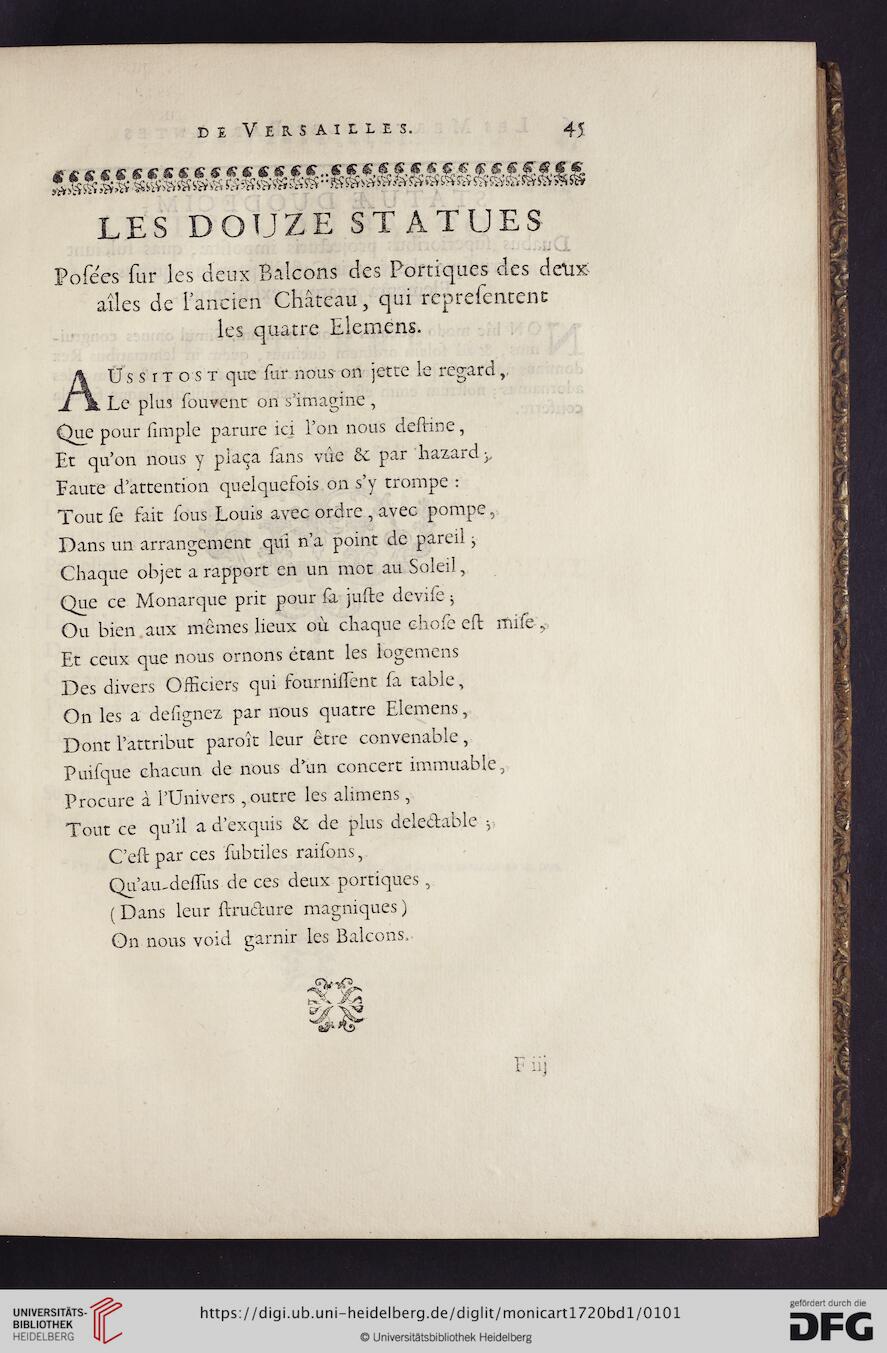 DE VERSAILLES. 45
LES DOUZE STATUES
Poſées ſur les deux Balcons des Portiques des deux
aîles de l'ancien Château, qui repreſentent
les quatre Elemens.
AUSSITOST que ſur nous on jette le regard,
Le plus ſouvent on s'imagine,
Que pour ſimple parure ici l'on nous deſtine,
Et qu'on nous y plaça ſans vûe & par hazard;
Faute d'attention quelquefois on s'y trompe :
Tout ſe fait ſous Louis avec ordre, avec pompe,
Dans un arrangement qui n'a point de pareil;
Chaque objet a rapport en un mot au Soleil,
Que ce Monarque prit pour ſa juſte deviſe;
Ou bien aux mêmes lieux où chaque choſe eſt miſe,
Et ceux que nous ornons étant les logemens
Des divers Officiers qui fourniſſent ſa table,
On les a deſignez par nous quatre Elemens,
Dont l'attribut paroît leur être convenable,
Puiſque chacun de nous d'un concert immuable,
Procure à l'Univers, outre les alimens,
Tout ce qu'il a d'exquis & de plus delectable;
C'eſt par ces ſubtiles raiſons,
Qu'au-deſſus de ces deux portiques,
(Dans leur ſtructure magniques)
On nous void garnir les Balcons.
F iij
UNIVERSITÄTS-
BIBLIOTHEK
HEIDELBERG
https://digi.ub.uni-heidelberg.de/diglit/monicart1720bd1/0101
© Universitätsbibliothek Heidelberg
gefördert durch die
DFG